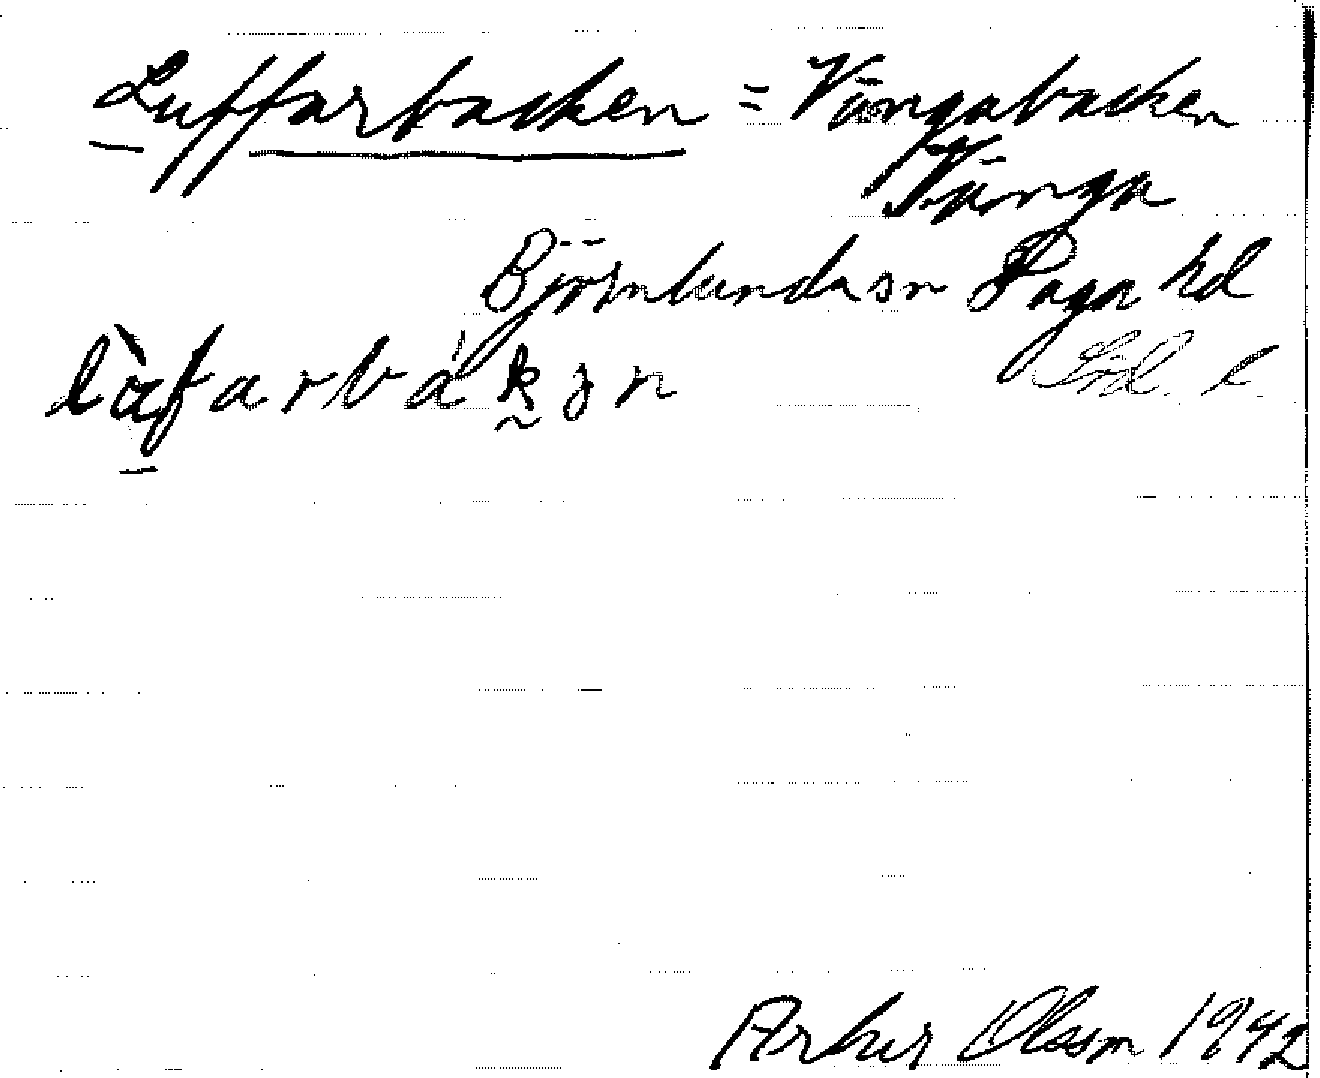 Luffarbacken = Vängabacken
Vänga
Björnlunda sn Daga hd
Söd. l.
Artur Olsson 1942